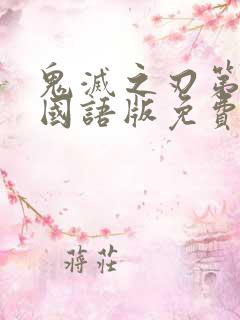 鬼滅之刃第
國語版免費
蔣莊